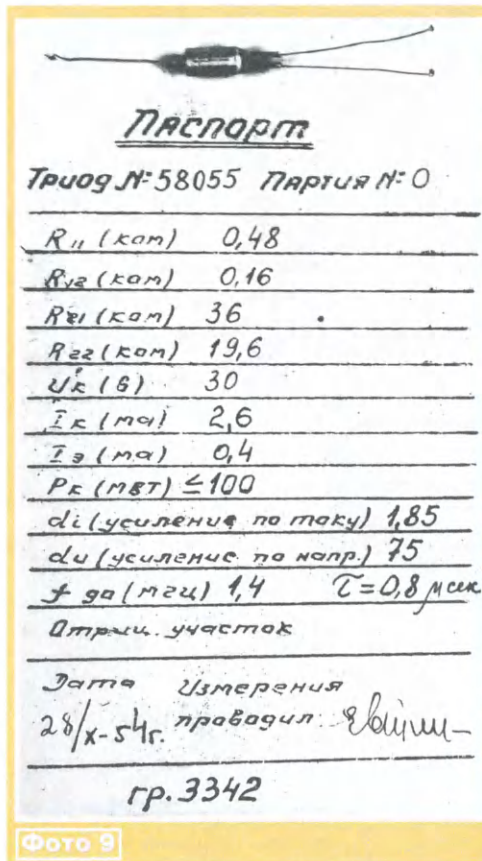 Паспорт
Триод № 58055 Партия № 0
R₁₁ (ком) 0,48
R₁₂ (ком) 0,16
R₂₁ (ком) 36
R₂₂ (ком) 19,6
Uк (в) 30
Iк (ma) 2,6
Iэ (ma) 0,4
Pк (мвт) ≤100
di (усиление по току) 1,85
du (усиление по напр.) 75
f до (мгц) 1,4 τ=0,8 мсек
Отриц. участок
Дата Измерения
28/x-54г. проводил
гр. 3342
Фото 9